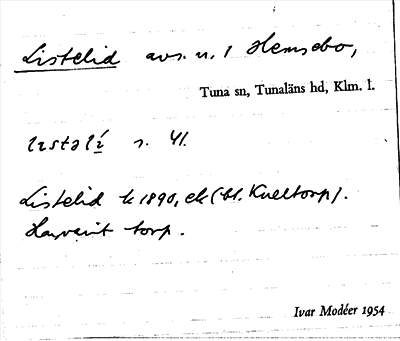 Listelid avs. u. 1 Hemsebo,
Tuna sn, Tunaläns hd, Klm. l.
s. 41.
Listelid k 1890, ek (bl. Kneltorp).
Har varit torp.
Ivar Modéer 1954